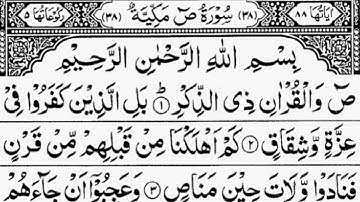 اٰيَاتُهَا ٨٨ (٣٨) سُوْرَةُ صٓ مَكِّيَّةٌ (٣٨) رُكُوْعَاتُهَا ٥
بِسْمِ اللّٰهِ الرَّحْمٰنِ الرَّحِيْمِ
صٓ وَالْقُرْاٰنِ ذِى الذِّكْرِ ؕ ۝١ بَلِ الَّذِيْنَ كَفَرُوْا فِىْ
عِزَّةٍ وَّشِقَاقٍ ۝٢ كَمْ اَهْلَكْنَا مِنْ قَبْلِهِمْ مِّنْ قَرْنٍ
فَنَادَوْا وَّلَاتَ حِيْنَ مَنَاصٍ ۝٣ وَعَجِبُوْۤا اَنْ جَآءَهُمْ